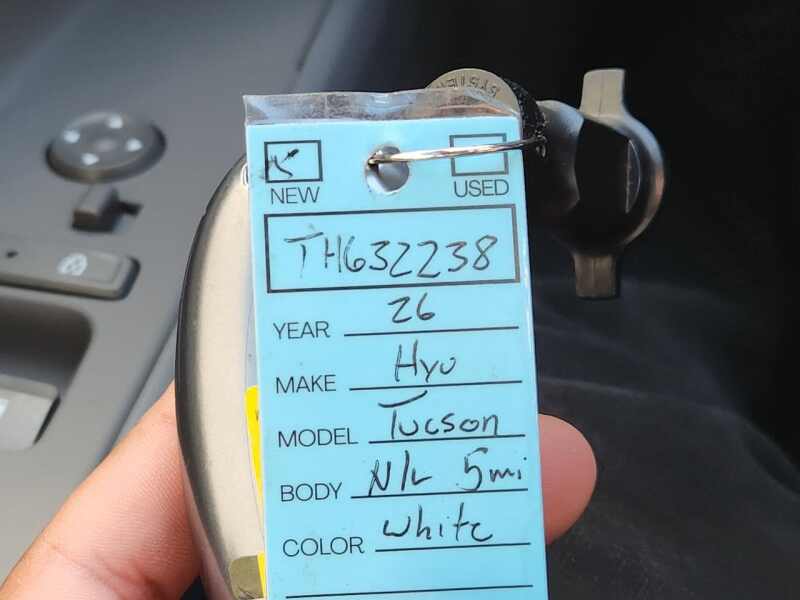 SYSTEM
NEW USED
TH632238
YEAR 26
MAKE Hyu
MODEL Tucson
BODY N/L 5mi
COLOR white